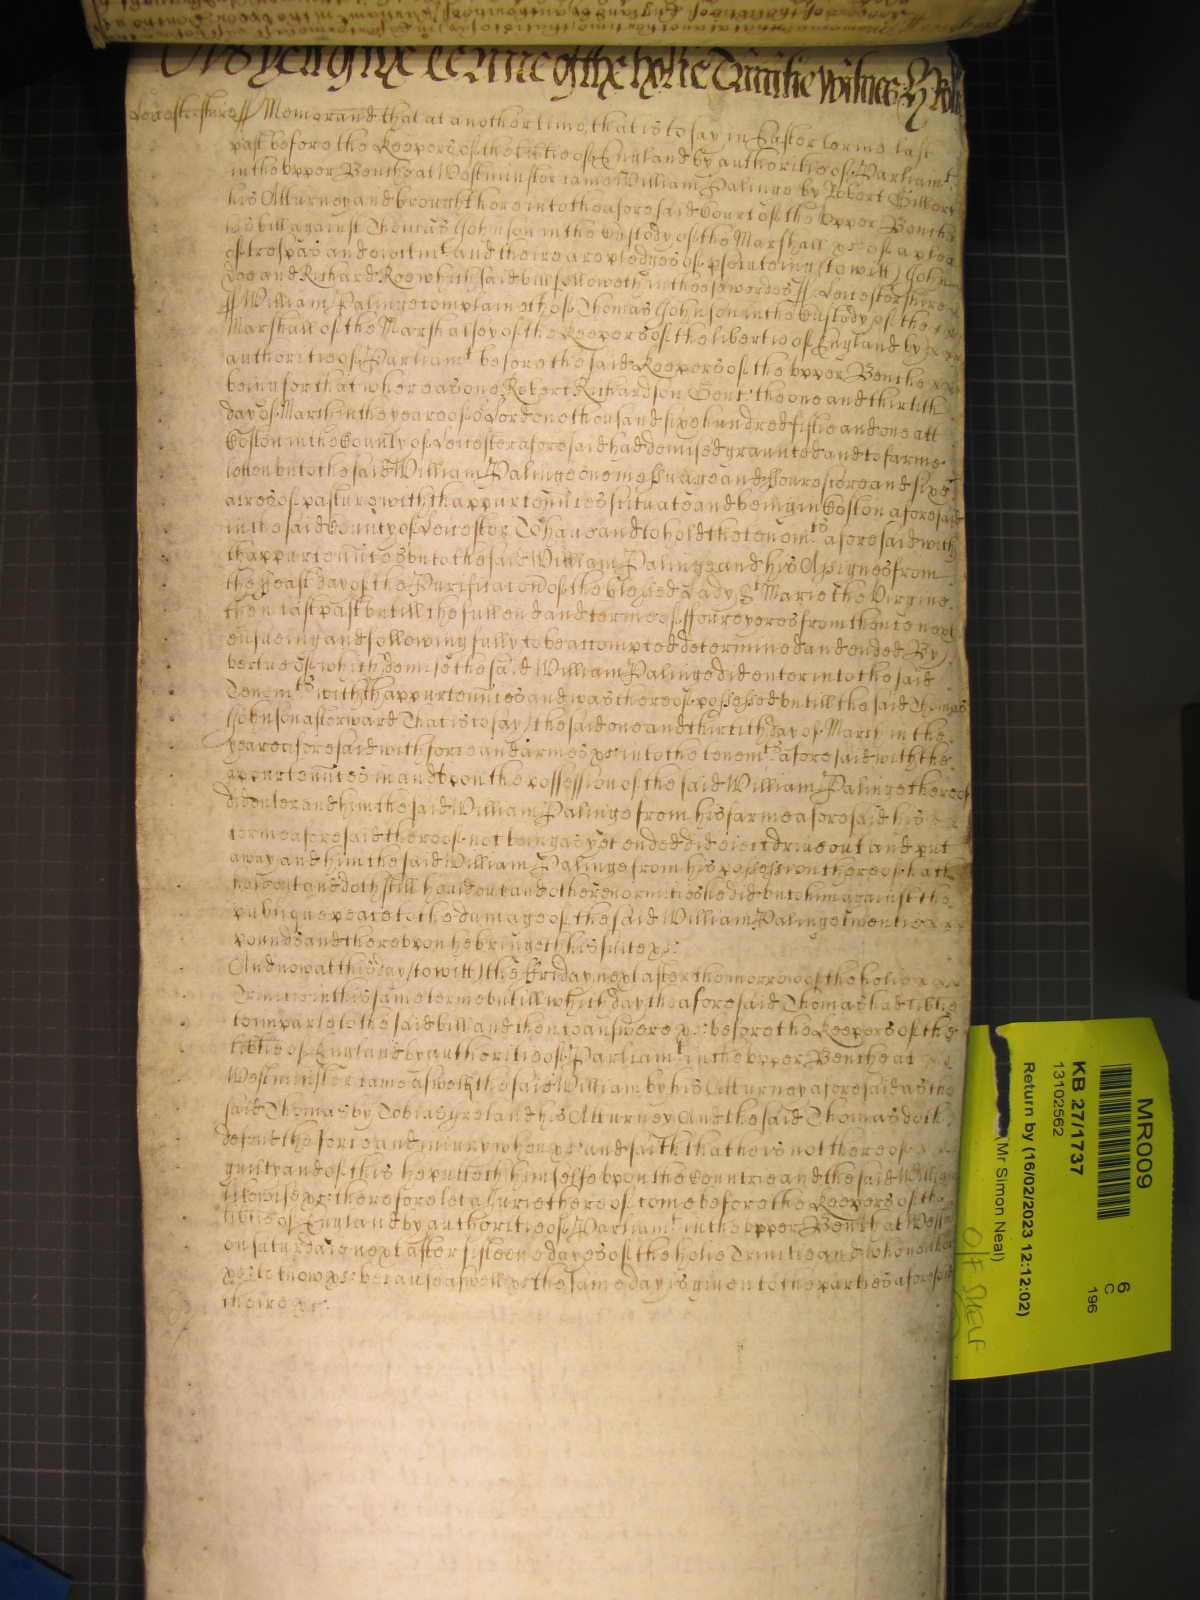 As yet of the terme of the holie Trinitie Witnes H Rolle
Leicestershire ss Memorand that at another time, that is to say in Easter terme last
past before the Keepers of the libtie of England by authoritie of Parliamt
in the upper Benche at Westminster came William Palinge by Robert Gilbert
his Atturney and brought here into the aforesaid Court of the upper Benche
his bill against Thomas Johnson in the Custody of the Marshall &c of a plea
of trespas and eiectmt and there are pledges of psecuteing (to witt) John
Doe and Richard Roe which said bill followeth in these wordes ss Leicestershire
ss William Palinge complaineth of Thomas Johnson in the Custody of the
Marshall of the Marshalsey of the Keepers of the libertie of England by
authoritie of Parliamt before the said Keepers of the upper Benche
being for that whereas one Robert Richardson Gent the one and thirtith
day of March in the yeare of or Lord one thousand six hundred fiftie and one att
Coston in the County of Leicester aforesaid had demised graunted and to farme
letten unto the said William Palinge one messuage and ffoure score and sixe
acres of pasture with thappurtennces scituate and being in Coston aforesaid
in the said County of Leicester To haue and to hold the tenemts aforesaid with
thappurtennces unto the said William Palinge and his Assignes from
the ffeast day of the Purificacon of the blessed Lady St Marie the Virgine
then last past untill the full end and terme of ffoure yeres from thence next
ensueing and following fully to be accompted determined and ended By
vertue of which demise the said William Palinge did enter into the said
Tenemts with thappurtennces and was thereof possessed untill the said Thomas
Johnson afterward That is to say) the said one and thirtith day of March in the
yeare aforesaid with force and armes &c into the tenemts aforesaid with the
appurtennces in and upon the possession of the said William Palinge thereof
did enter and him the said William Palinge from his farme aforesaid his
terme aforesaid thereof not being as yet ended did eiect drive out and put
away and him the said William Palinge from his possession thereof hath
holden out and doth still hould out and other enormities he did unto him against the
publique peace to the damage of the said William Palinge twentie
pounds and thereupon he bringeth his suite &c:
And now at this day (to witt) the ffriday next after the morrow of the holie
Trinitie in this same terme untill which day the aforesaid Thomas had libtie
to imparle to the said bill and then to answere &c: before the Keepers of the
libtie of England by authoritie of Parliamt in the upper Benche at
Westminster came aswell the said William by his Atturney aforesaid as the
said Thomas by Tobias Ireland his Atturney And the said Thomas doth
defend the force and iniury when &c and saith that he is not thereof
guilty and of this he putteth himselfe upon the Countrie and the said William
likewise &c: therefore let a Jurie thereof come before the Keepers of the
libtie of England by authoritie of Parliamt in the upper Bench at Westm
on saturdaie next after fifteene dayes of the holie Trinitie and who neither
&c: to know &c: because aswell &c the same day is given to the parties aforesaid
there &c:
MR009
6
C
196
KB 27/1737
13102562
Return by (16/02/2023 12:12:02)
(Mr Simon Neal)
O/F SHELF